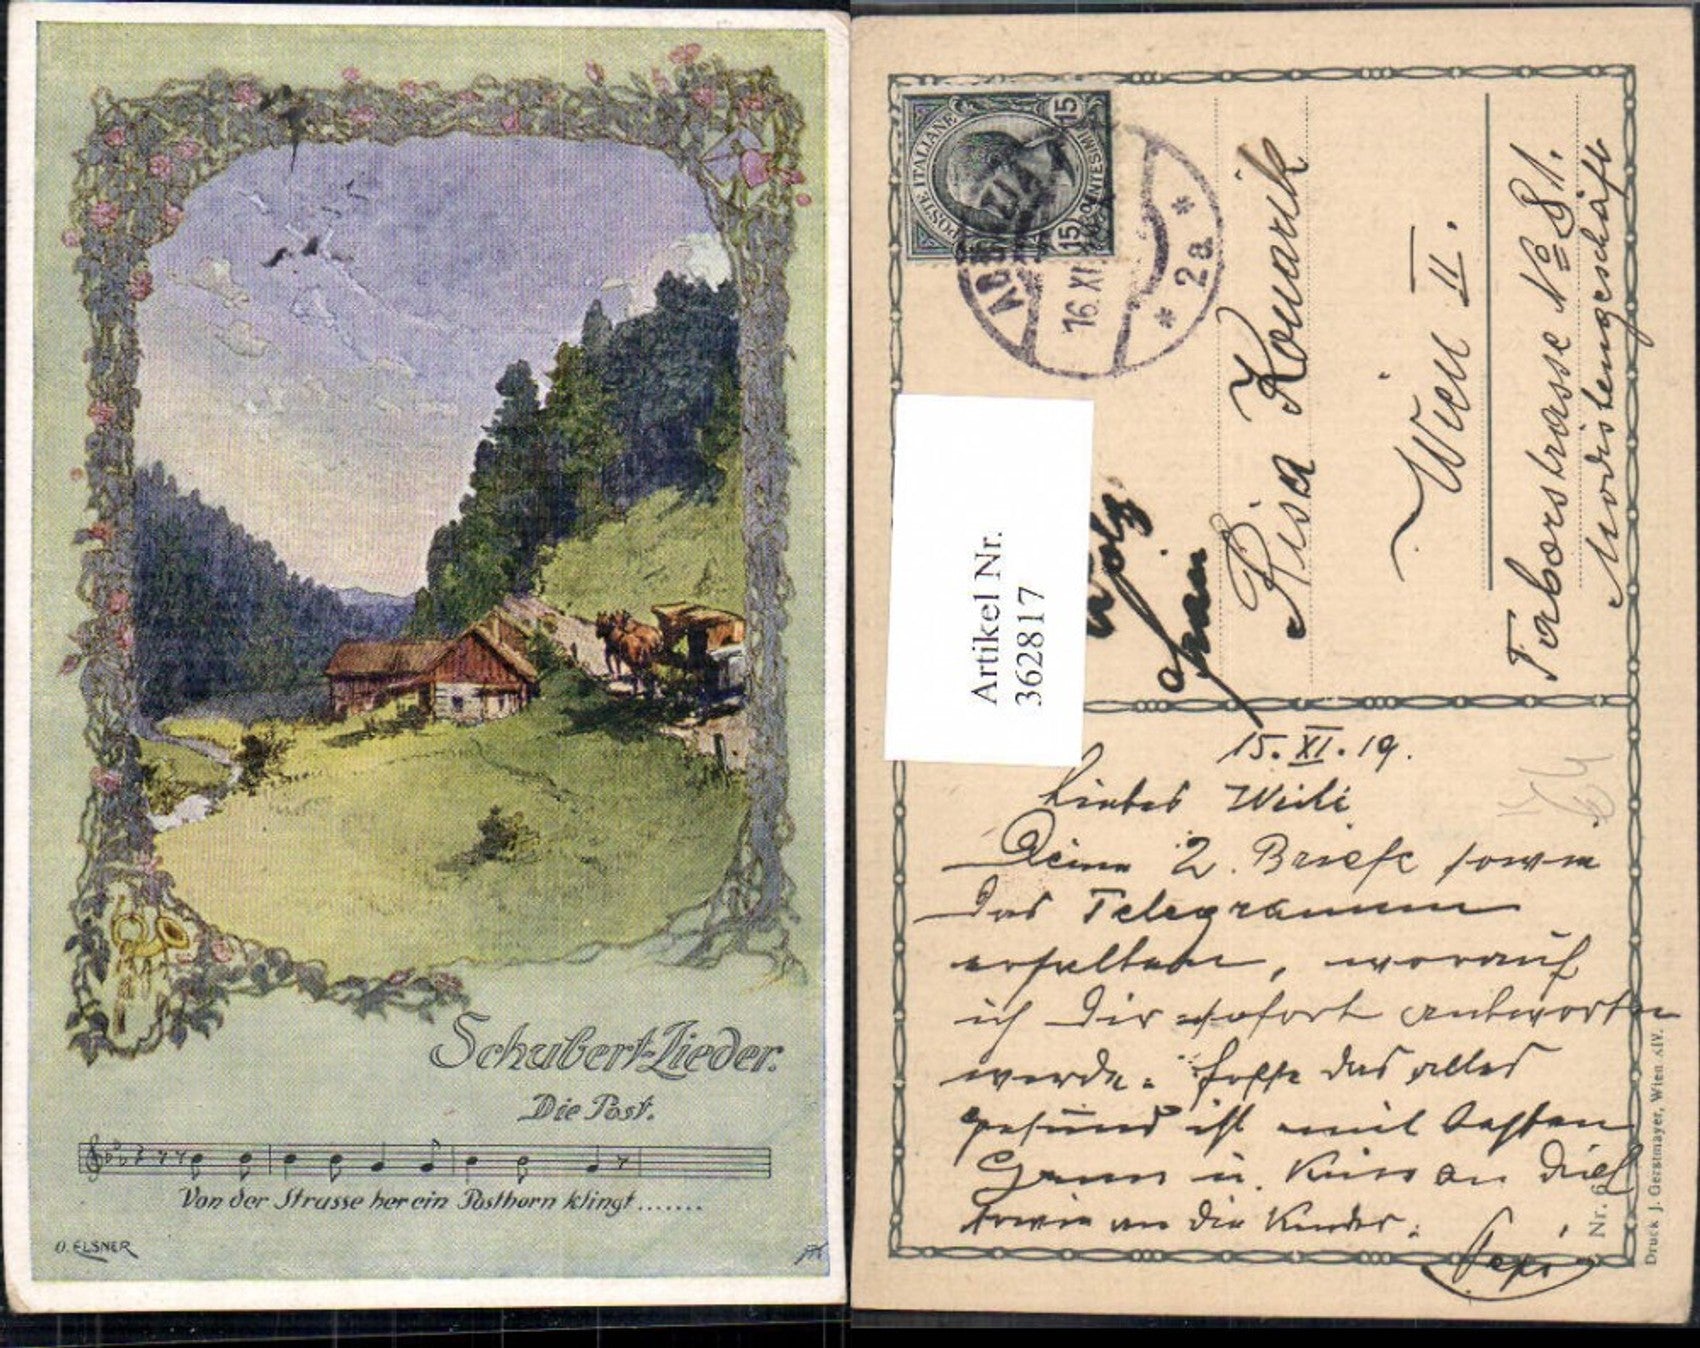 Schubert-Lieder.
Die Post.
Von der Strasse her ein Posthorn klingt.......
O. ELSNER
POSTE ITALIANE
15 CENTESIMI 15
ABBAZIA
16.XI
* 2a *
Artikel Nr.
362817
Risa Komarik
Wien II.
Taborstrasse No 81.
Modistengeschäft
15. XI. 19.
Liebes Weibi
Deine 2. Briefe sowie
das Telegramm
erhalten, worauf
ich dir sofort antworten
werde. Hoffe das alles
gesund ist mit besten
Gruss u. Kuss an Dich
sowie an die Kinder.
Pepi
Nr. 6
Druck J. Gerstmayer, Wien XIV.